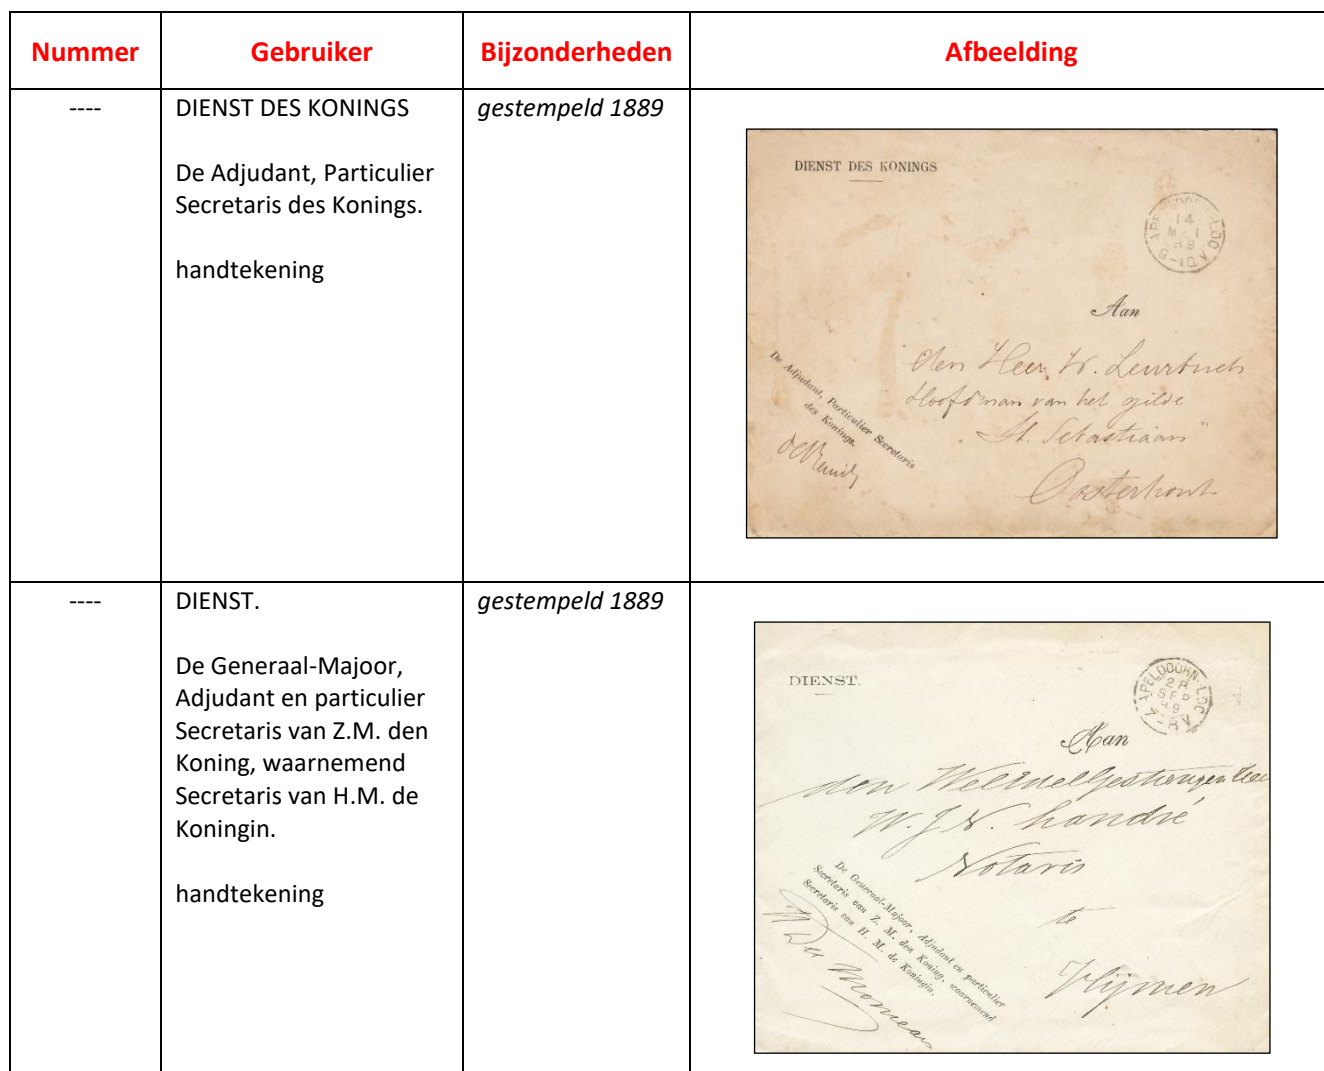 Nummer Gebruiker Bijzonderheden Afbeelding
---- DIENST DES KONINGS gestempeld 1889
De Adjudant, Particulier
Secretaris des Konings.
handtekening
DIENST DES KONINGS
APELDOORN-LOO
14
MEI
89
Aan
den Heer W.
Hoofdman van het gilde
"St. Sebastiaan"
Oosterhout
De Adjudant, Particulier Secretaris
des Konings.
---- DIENST. gestempeld 1889
De Generaal-Majoor,
Adjudant en particulier
Secretaris van Z.M. den
Koning, waarnemend
Secretaris van H.M. de
Koningin.
handtekening
DIENST.
APELDOORN-LOO
SEP
Aan
den WelEdelGestrengen Heer
W. J. N. Landré
Notaris
te
Vlijmen
De Generaal-Majoor, Adjudant en particulier
Secretaris van Z. M. den Koning, waarnemend
Secretaris van H. M. de Koningin.